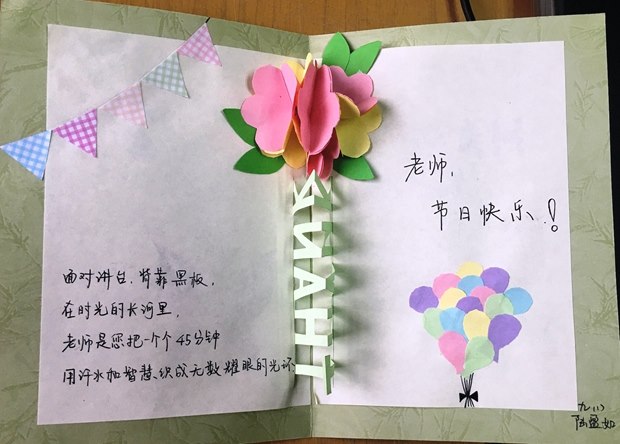 面对讲台,背靠黑板,
在时光的长河里,
老师是您把一个个45分钟
用汗水和智慧织成无数耀眼的光环
THANK
老师,
节日快乐!
九(1)
陆盈如